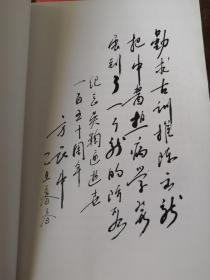 勤求古训推陈出新
把中醫温病学发
展到了一个新的阶段
纪念吴鞠通逝世
一百五十周年
方药中
乙丑春